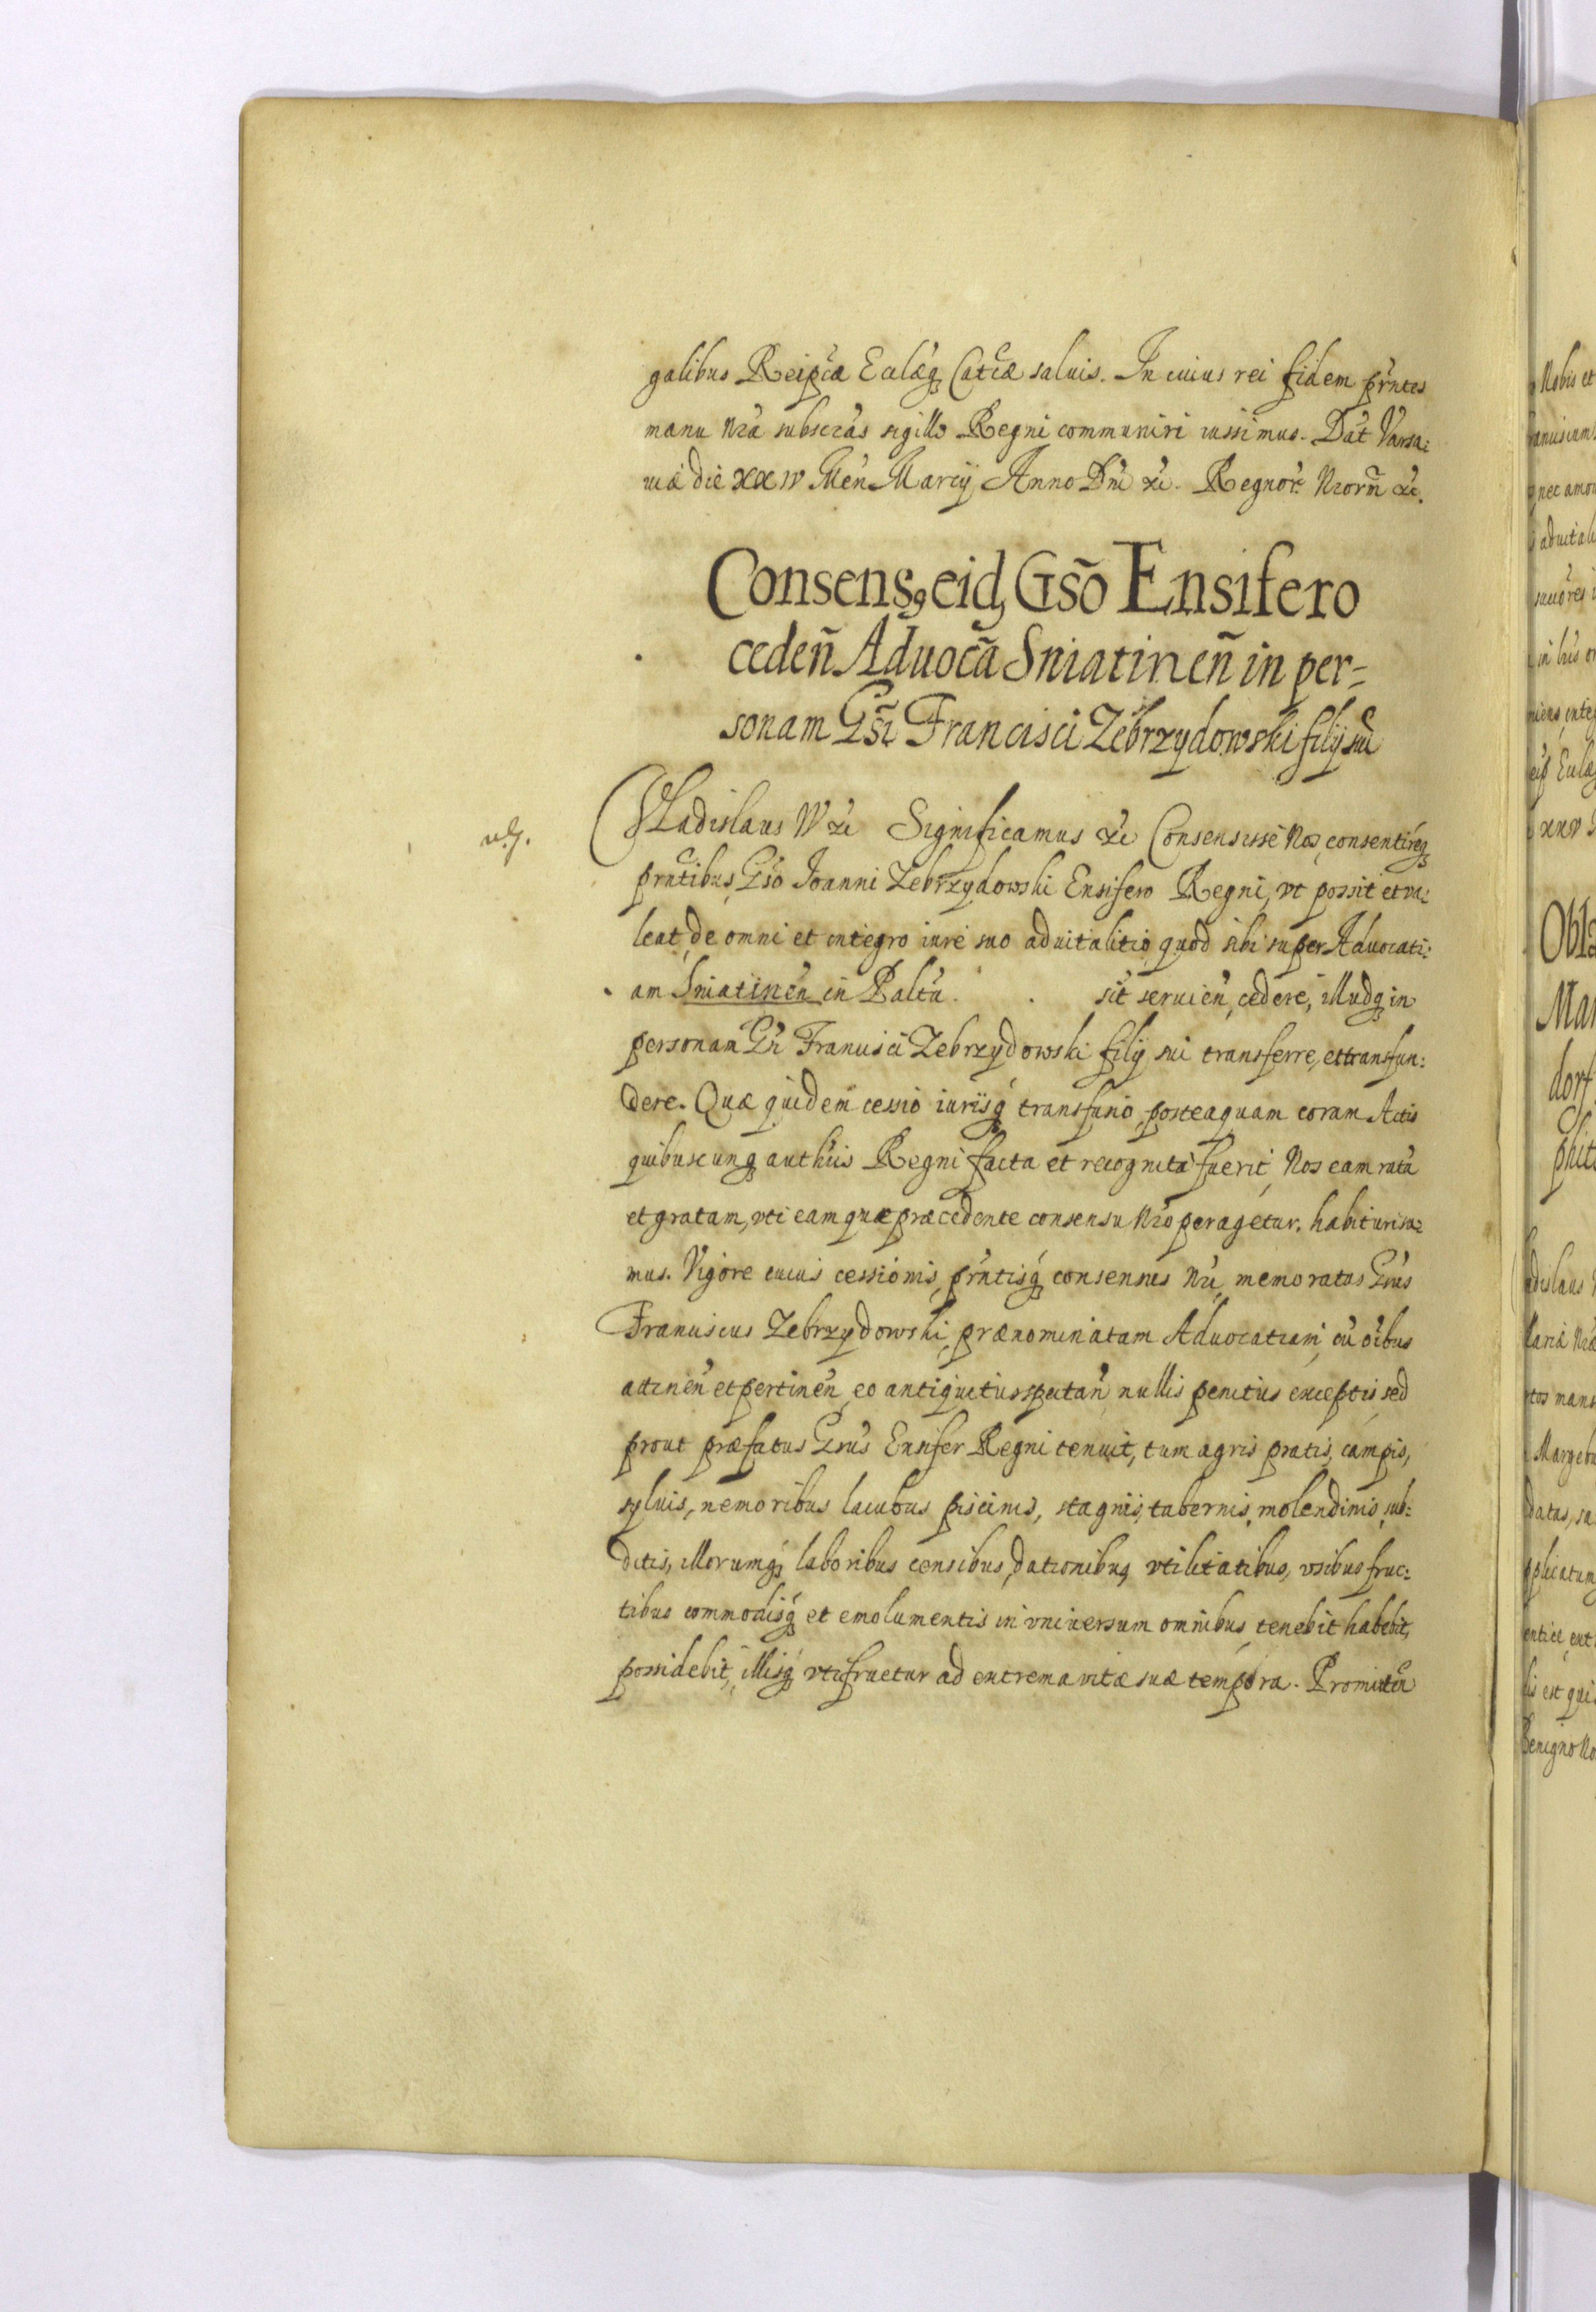 galibus Reipcæ Eclæq Catcæ saluis. In cuius rei fidem prntes
manu Nra subscras sigillo Regni communiri iussimus. Dat Varsa:
uiæ die XXIV Men Marcij Anno Dni &c. Regnor Nrorm &c.
Consens9 eid Gso Ensifero
ceden Aduocã Sniatineñ in per=
sonam Gsi Francisci Zebrzydowski filij sui
Vladislaus IV &c Significamus &c Consensisse Nos, consentireq
prntibus, Gso Ioanni Zebrzydowski Ensifero Regni, vt possit et va:
leat, de omni et integro iure suo aduitalitio, quod sibi super Aduocati:
am Sniatinen in Paltu . . sit seruien, cedere, illudq in
personam Gsi Francisci Zebrzydowski filij sui transferre, et transfun:
dere. Quæ quidem cessio iurisq transfusio, posteaquam coram Actis
quibuscunq authcis Regni facta et recognita fuerit, Nos eam ratã
et gratam, vti eam quæ præcedente consensu Nro peragetur, habituri su:
mus. Vigore cuius cessionis, prntisq consensus Nri, memoratus Gsus
Franciscus Zebrzydowski, prænominatam Aduocatiam, cu oibus
attinen et pertinen, eo antiquitus spectan, nullis penitus exceptis, sed
prout præfatus Gsus Ensifer Regni tenuit, tum agris pratis, campis,
syluis, nemoribus lacubus piscinis, stagnis, tabernis, molendinis, sub:
ditis, illorumq laboribus censibus, dationibus, vtilitatibus, vsibus fruc:
tibus commodisq et emolumentis in vniuersum omnibus, tenebit habebit,
possidebit, illisq vtifruetur ad extrema vitæ suæ tempora. Promitten